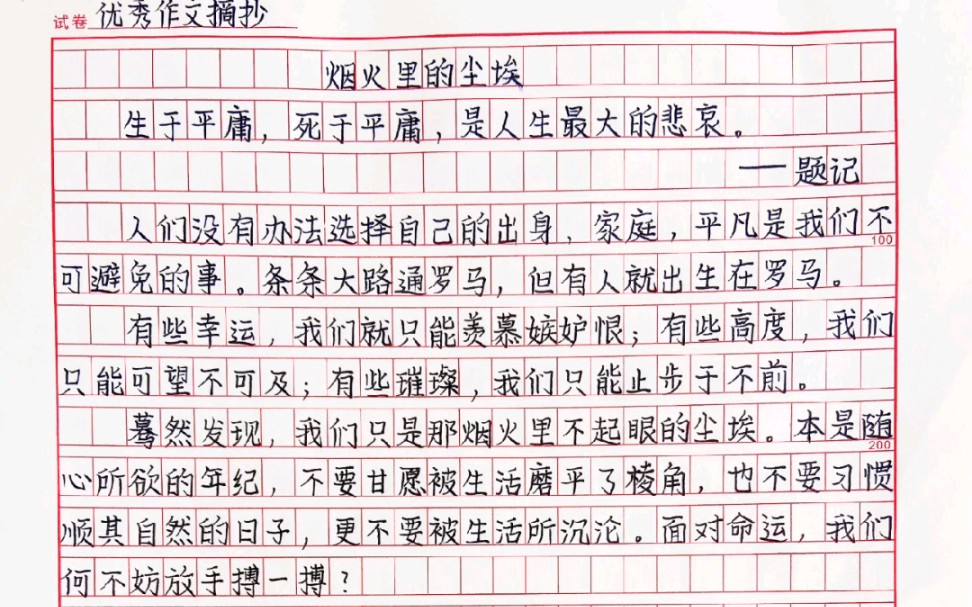 试卷 优秀作文摘抄
烟火里的尘埃
生于平庸，死于平庸，是人生最大的悲哀。
——题记
人们没有办法选择自己的出身、家庭，平凡是我们不
100
可避免的事。条条大路通罗马，但有人就出生在罗马。
有些幸运，我们就只能羡慕嫉妒恨；有些高度，我们
只能可望不可及；有些璀璨，我们只能止步于不前。
蓦然发现，我们只是那烟火里不起眼的尘埃。本是随
200
心所欲的年纪，不要甘愿被生活磨平了棱角，也不要习惯
顺其自然的日子，更不要被生活所沉沦。面对命运，我们
何不妨放手搏一搏？